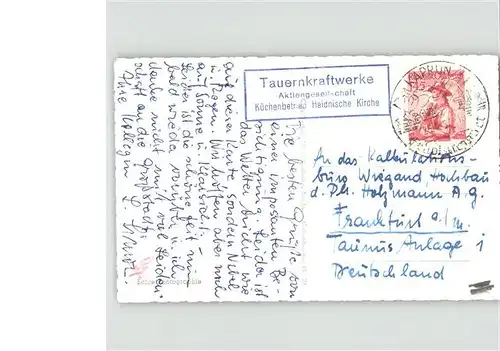 Tauernkraftwerke
Aktiengesellschaft
Küchenbetrieb Heidnische Kirche
KAPRUN
Die besten Grüße von
einer imposanten Be-
sichtigung. Leider ist
das Wetter nicht wie
auf dieser Karte sondern Nebel
u. Regen. Wir hoffen aber noch
auf Sonne u. Klarsicht.
Leider ist die schöne Zeit nur
bald wieder vorüber u. ich
denke nicht mit viel Leiden-
schaft an die Großstadt.
Ihre Kollegin
An das Kalkulations-
büro Wiegand, Hochbau
d. Ph. Holzmann A.G.
Frankfurt a/m.
Taunus Anlage 1
Deutschland
Echte Photographie